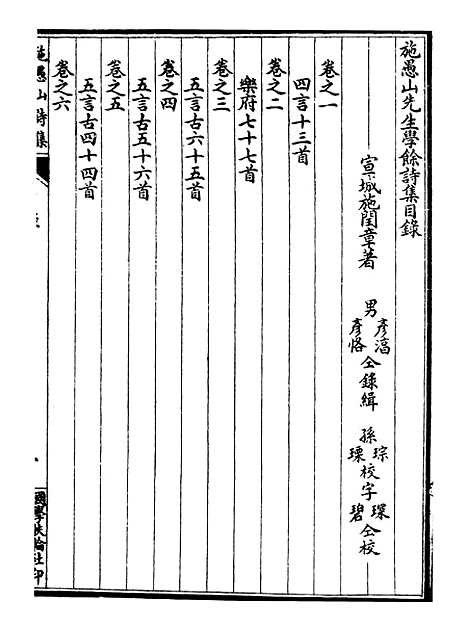 施愚山先生學餘詩集目錄
宣城施閏章著 男彥淳彥恪仝錄緝 孫琮瑮校字琛碧仝校
卷之一
四言十三首
卷之二
樂府七十七首
卷之三
五言古六十五首
卷之四
五言古五十六首
卷之五
五言古四十四首
卷之六
施愚山詩集
國學扶輪社印